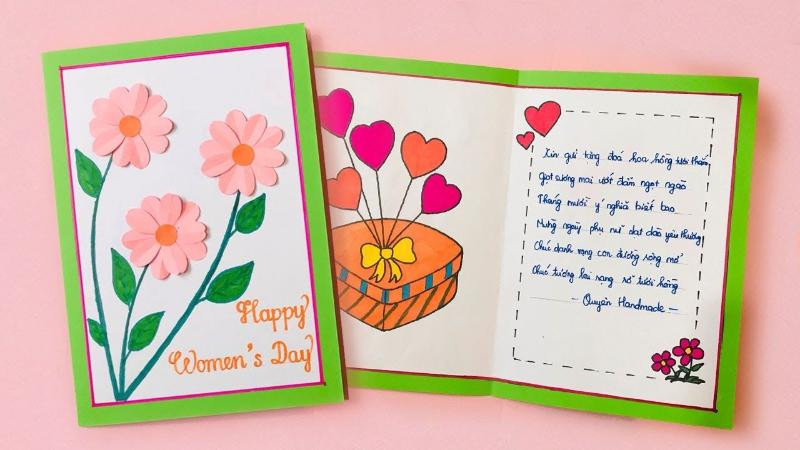 Happy
Women's Day
Xin gửi tặng đoá hoa hồng tươi thắm
Giọt sương mai ướt đẫm ngọt ngào
Tháng mười ý nghĩa biết bao
Mừng ngày phụ nữ dạt dào yêu thương
Chúc danh vọng con đường sáng mở
Chúc tương lai rạng rỡ tươi hồng
- Quyên Handmade -